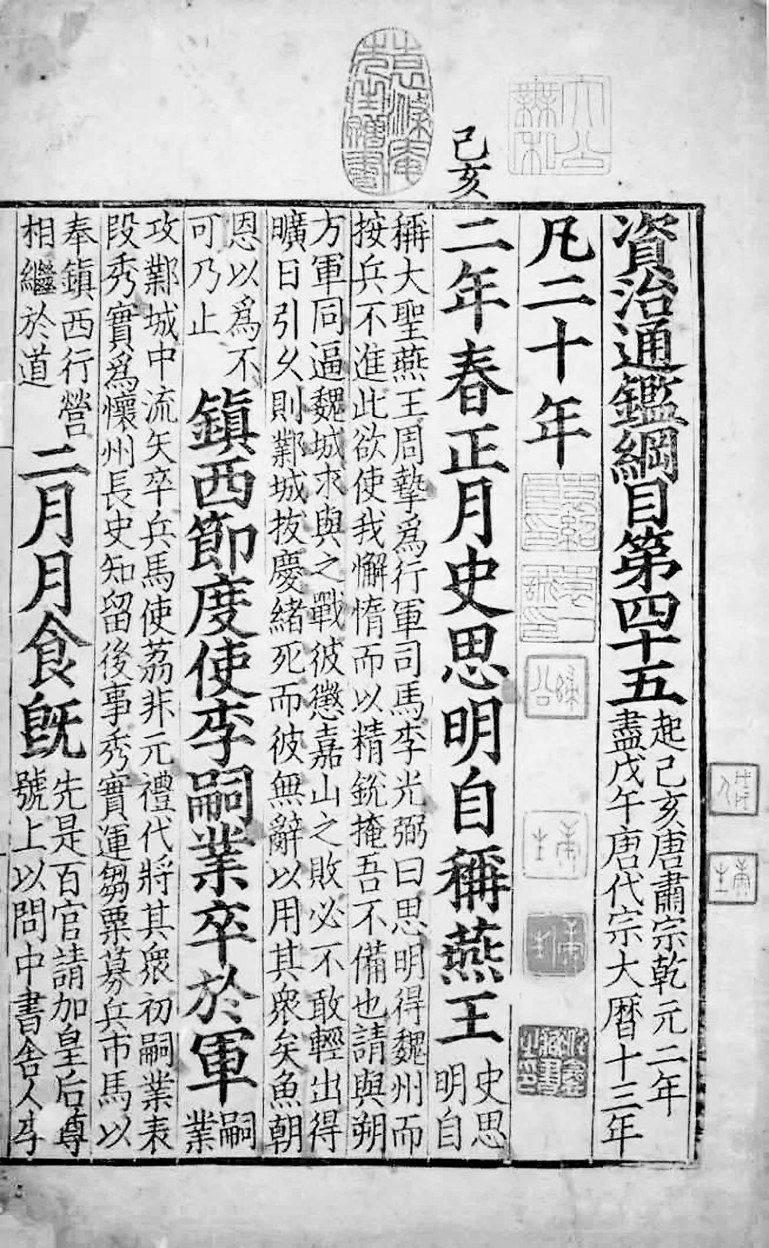 大公無私
袁滌庵先生贈書
資治通鑑綱目第四十五
起己亥唐肅宗乾元二年
盡戊午唐代宗大曆十三年
凡二十年
己亥
二年春正月史思明自稱燕王
史思
明自
稱大聖燕王周摯爲行軍司馬李光弼曰思明得魏州而
按兵不進此欲使我懈惰而以精銳掩吾不備也請與朔
方軍同逼魏城求與之戰彼懲嘉山之敗必不敢輕出得
曠日引久則鄴城拔慶緒死而彼無辭以用其衆矣魚朝
恩以爲不
可乃止
鎮西節度使李嗣業卒於軍
嗣
業
攻鄴城中流矢卒兵馬使荔非元禮代將其衆初嗣業表
段秀實爲懷州長史知留後事秀實運芻粟募兵市馬以
奉鎮西行營
相繼於道
二月月食旣
先是百官請加皇后尊
號上以問中書舍人李